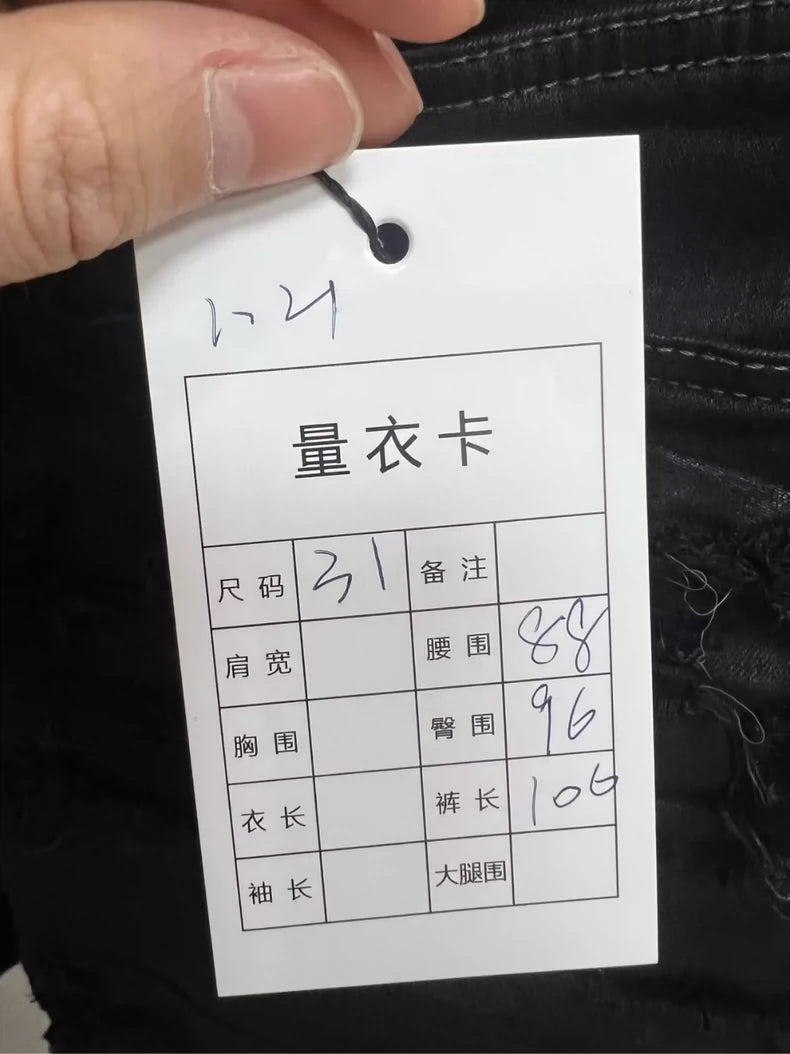 1、21
量衣卡
尺码 31 备注
肩宽 腰围 88
胸围 臀围 96
衣长 裤长 106
袖长 大腿围